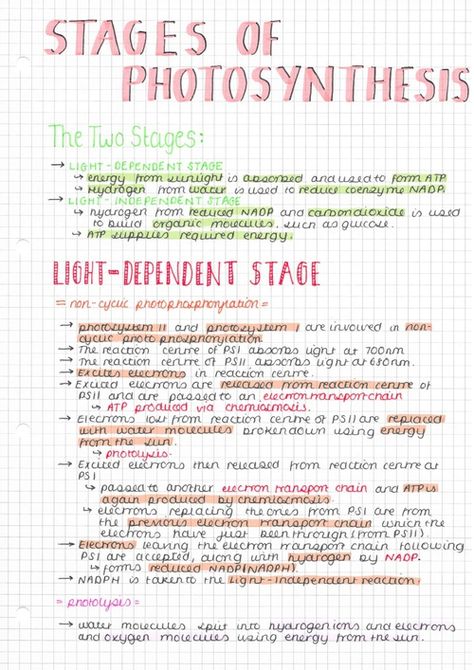 STAGES OF
PHOTOSYNTHESIS
The Two Stages:
→ LIGHT-DEPENDENT STAGE
↳ energy from sunlight is absorbed and used to form ATP
↳ Hydrogen from water is used to reduce coenzyme NADP.
→ LIGHT-INDEPENDENT STAGE
↳ hydrogen from reduced NADP and carbon dioxide is used
to build organic molecules, such as glucose.
↳ ATP supplies required energy.
LIGHT-DEPENDENT STAGE
= non-cyclic photophosphorylation =
→ photosystem II and photosystem I are involved in non-
cyclic photophosphorylation.
→ The reaction centre of PSI absorbs light at 700nm
→ The reaction centre of PSII absorbs light at 680nm.
→ Excites electrons in reaction centre.
→ Excited electrons are released from reaction centre of
PSII and are passed to an electron transport chain
↳ ATP produced via chemiosmosis.
→ Electrons lost from reaction centre of PSII are replaced
with water molecules broken down using energy
from the sun.
↳ photolysis.
→ Excited electrons then released from reaction centre at
PSI
↳ passed to another electron transport chain and ATP is
again produced by chemiosmosis.
↳ electrons replacing the ones from PSI are from
the previous electron transport chain which the
electrons have just been through (from PSII).
→ Electrons leaving the electron transport chain following
PSI are accepted, along with hydrogen by NADP.
↳ forms reduced NADP (NADPH).
→ NADPH is taken to the light-independent reaction.
= photolysis =
→ water molecules split into hydrogen ions and electrons
and oxygen molecules using energy from the sun.